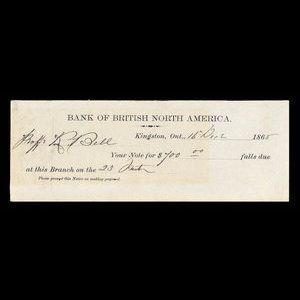 BANK OF BRITISH NORTH AMERICA.
Kingston, Ont., 15 Dec 1865
Proff R Bell
Your Note for $700 00 falls due
at this Branch on the 23 Inst
Please present this Notice on making payment.